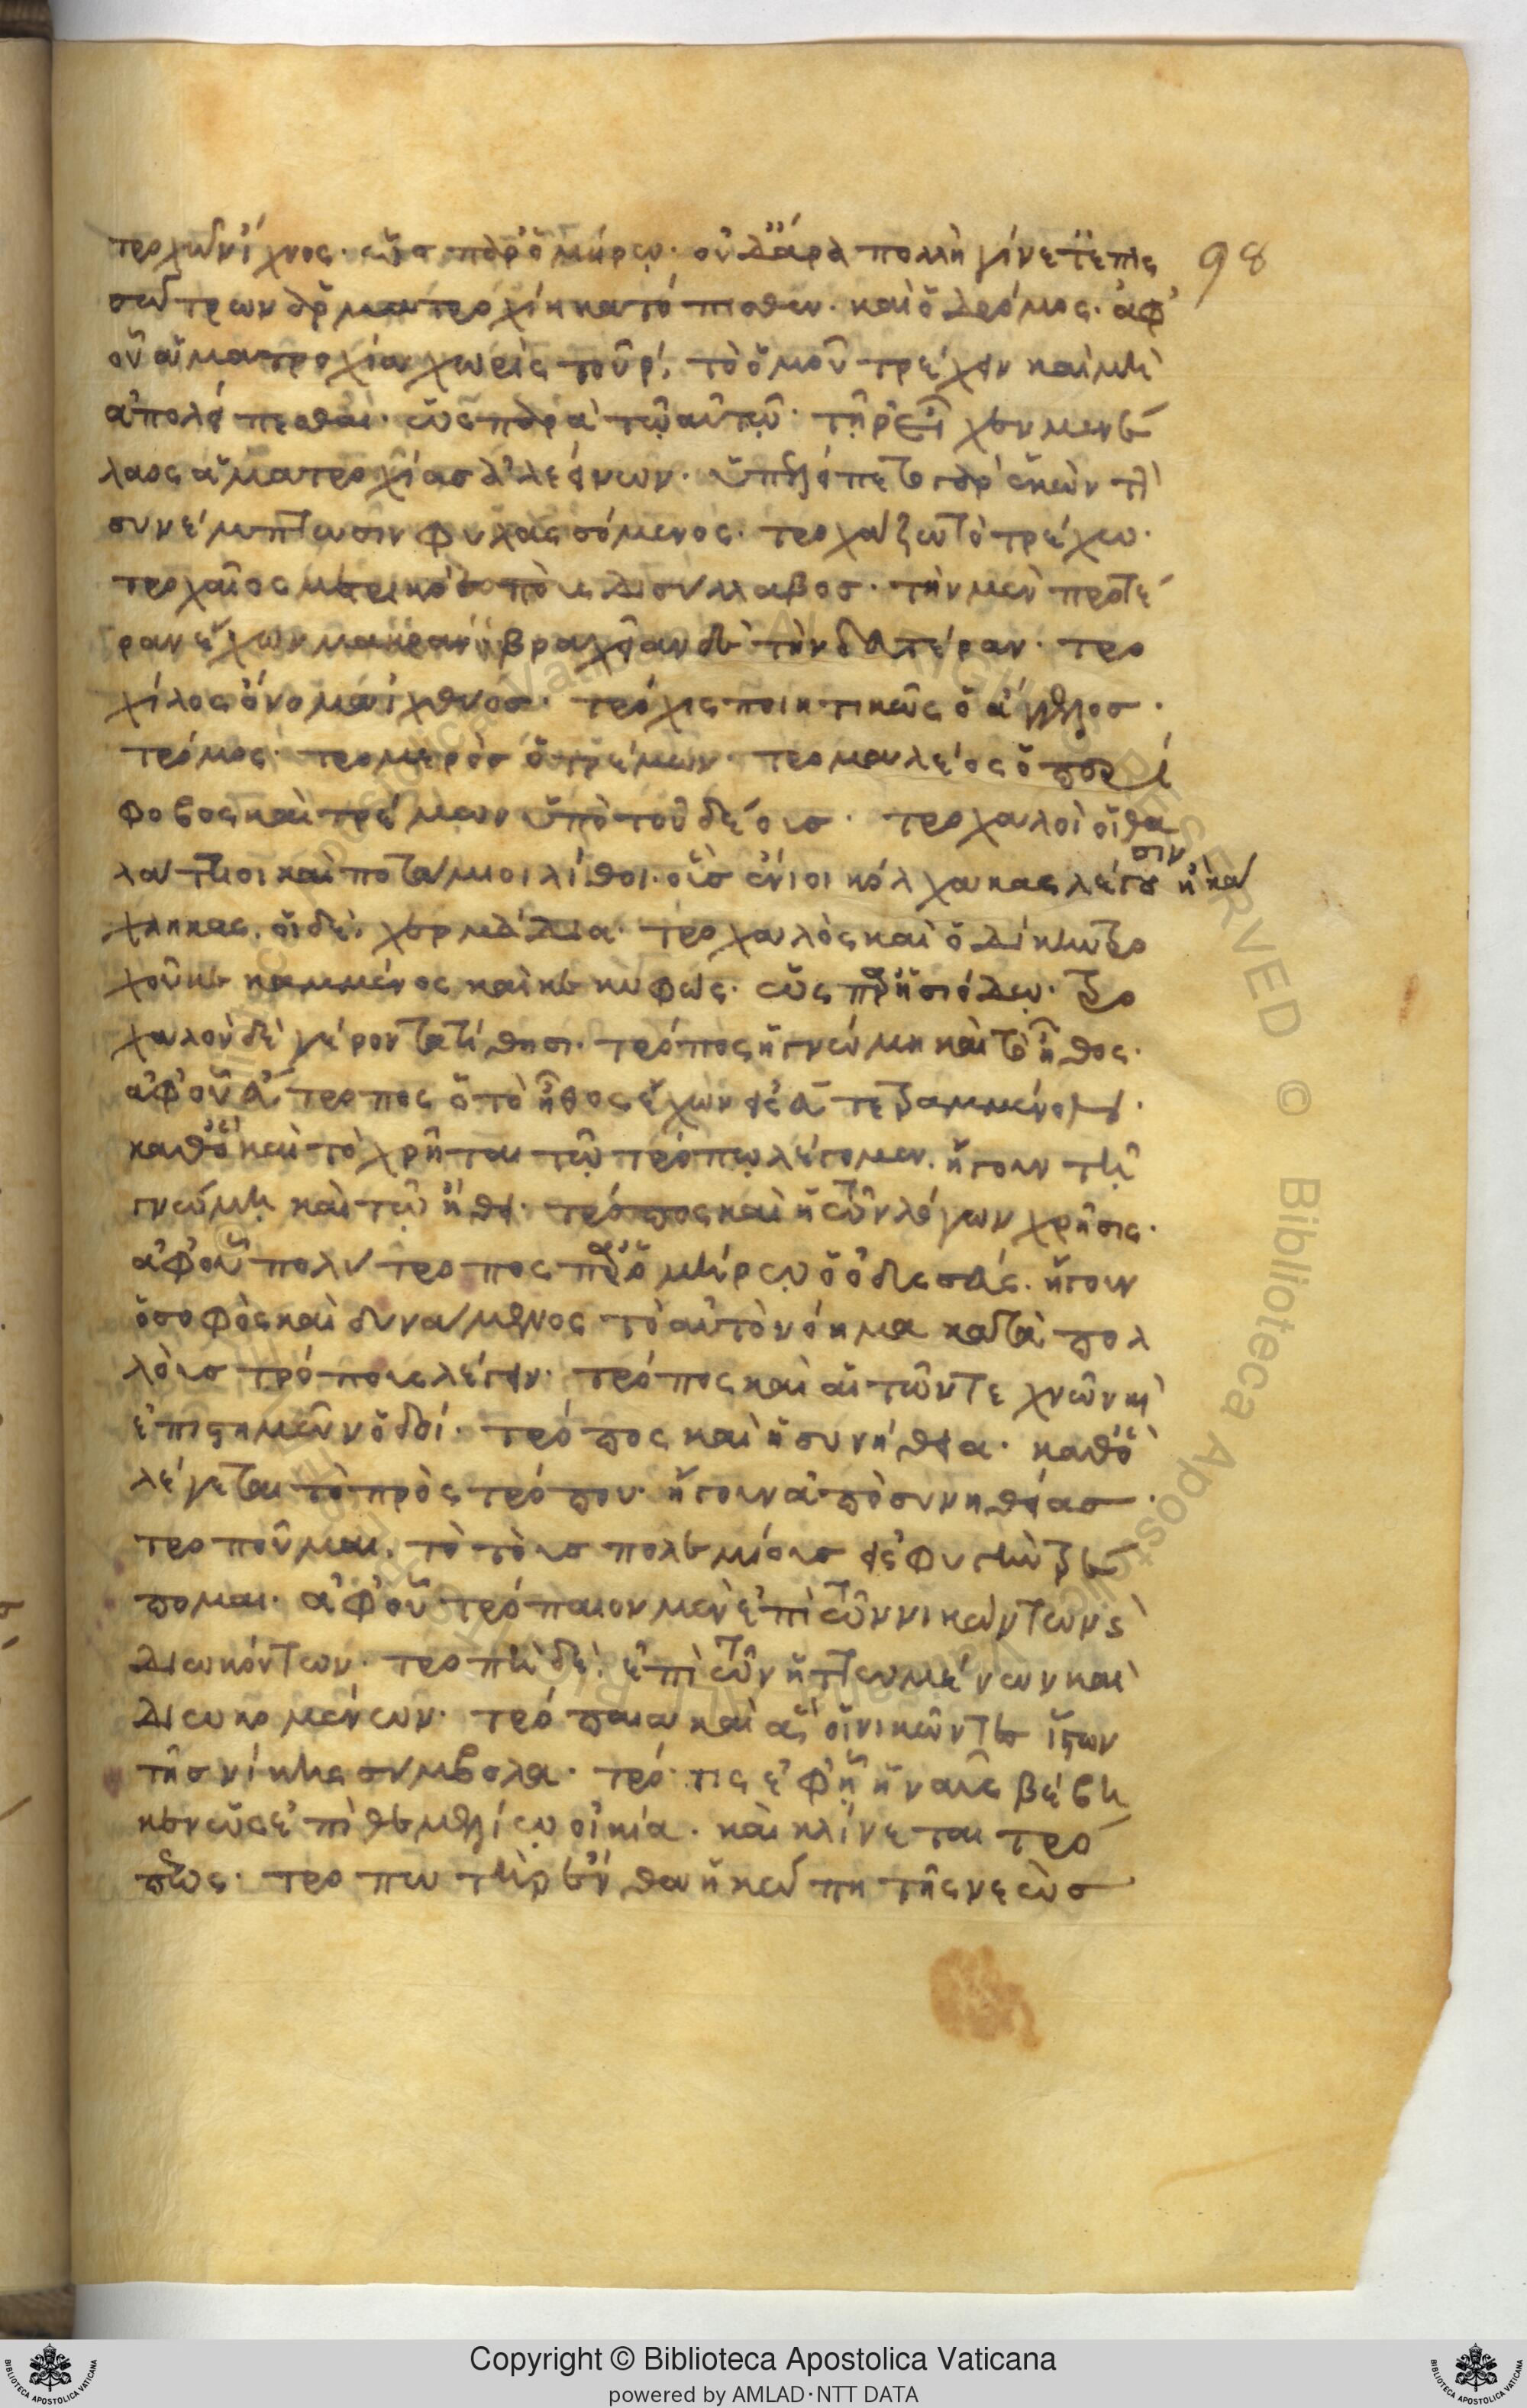 τροχῶν ἴχνος· ὡς παρ' ὁμήρῳ· οὐδ' ἄρα πολλὴ γίνετ' ἐπισ
σώτρων ἁρματροχίη κατόπισθεν· καὶ ὁ δρόμος· ἀφ'
οὗ ἁματροχία χωρὶς τοῦ ρ, τὸ ὁμοῦ τρέχειν καὶ μὴ
ἀπολείπεσθαι· ὡς παρὰ τῷ αὐτῷ· τῇ ῥ' εἶχεν μενέ
λαος ἁματροχίας ἀλεείνων·
συνέμπτωσιν φυλασσόμενος· τροχάζω τὸ τρέχω·
τροχαῖος μετρικὸς ποὺς δισύλλαβος· τὴν μὲν προτέ
ραν ἔχων μακρὰν· βραχεῖαν δὲ τὴν δευτέραν· τρο
χίλος ὄνομα ἰχθύος· τρόχις ποιητικῶς ὁ ἄγγελος·
τρόμος· τρομερὸς ὁ τρέμων· τρομαλέος ὁ περί
φοβος καὶ τρέμων ὑπὸ τοῦ δέους· τροχαλοὶ οἱ θα
λάττιοι καὶ ποτάμιοι λίθοι· οἷς ἔνιοι κόλχακας λέγουσιν ἢ κά
χληκας. οἱ δὲ, χερμάδια· τροχαλὸς καὶ ὁ δίκην τρο
χοῦ κεκαμμένος καὶ κεκυφώς· ὡς παρ' ἡσιόδῳ· τρο
χαλὸν δὲ γέροντα τίθησι· τρόπος ἡ γνώμη καὶ τὸ ἦθος·
ἀφ' οὗ εὔτροπος ὁ τὸ ἦθος ἔχων εὖ τετραμμένον·
καθὸ καὶ τὸ χρῆται τῷ τρόπῳ λέγομεν. ἤγουν τῇ
γνώμῃ καὶ τῷ ἤθει· τρόπος καὶ ἡ τῶν λόγων χρῆσις·
ἀφ' οὗ πολύτροπος παρ' ὁμήρῳ ὁ ὀδυσσεύς. ἤγουν
ὁ σοφὸς καὶ δυνάμενος τὸ αὐτὸ νόημα κατὰ πολ
λοὺς τρόπους λέγειν· τρόπος καὶ αἱ τῶν τεχνῶν καὶ
ἐπιστημῶν ὁδοί· τρόπος καὶ ἡ συνήθεια· καθὸ
λέγεται τὸ πρὸς τρόπου· ἤγουν ἀπὸ συνηθείας·
τροποῦμαι, τὸ τοὺς πολεμίους εἰς φυγὴν τρέ
πομαι· ἀφ' οὗ τρόπαιον μὲν ἐπὶ τῶν νικώντων καὶ
διωκόντων· τροπὴ δὲ, ἐπὶ τῶν ἡττωμένων καὶ
διωκομένων· τρόπαια καὶ ἃ οἱ νικῶντες ἵστων
τῆς νίκης σύμβολα· τρόπις ἐφ' ᾗ ἡ ναῦς βέβη
κεν ὡς ἐπὶ θεμελίῳ οἰκία· καὶ κλίνεται τρό
πεως· τροπωτὴρ ἔνθα ἡ κώπη τῆς νεὼς
98